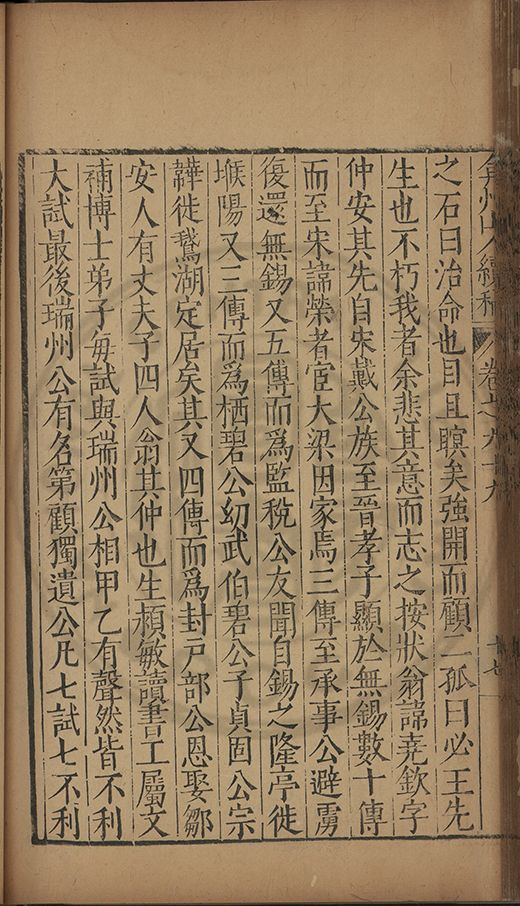 弇州山人續稿 卷之九十九
之石曰治命也目且瞑矣強開而顧二孤曰必王先
生也不朽我者余悲其意而志之按狀翁諱堯欽字
仲安其先自宋戴公族至晉孝子顯於無錫數十傳
而至宋諱榮者宦大梁因家焉三傳至承事公避虜
復還無錫又五傳而爲監稅公友聞自錫之隆亭徙
堠陽又三傳而爲栖碧公幼武伯碧公子貞固公宗
韡徙鵞湖定居矣其又四傳而爲封戸部公恩娶鄒
安人有丈夫子四人翁其仲也生頴敏讀書工屬文
補博士弟子每試與瑞州公相甲乙有聲然皆不利
大試最後瑞州公有名第顧獨遺公凡七試七不利